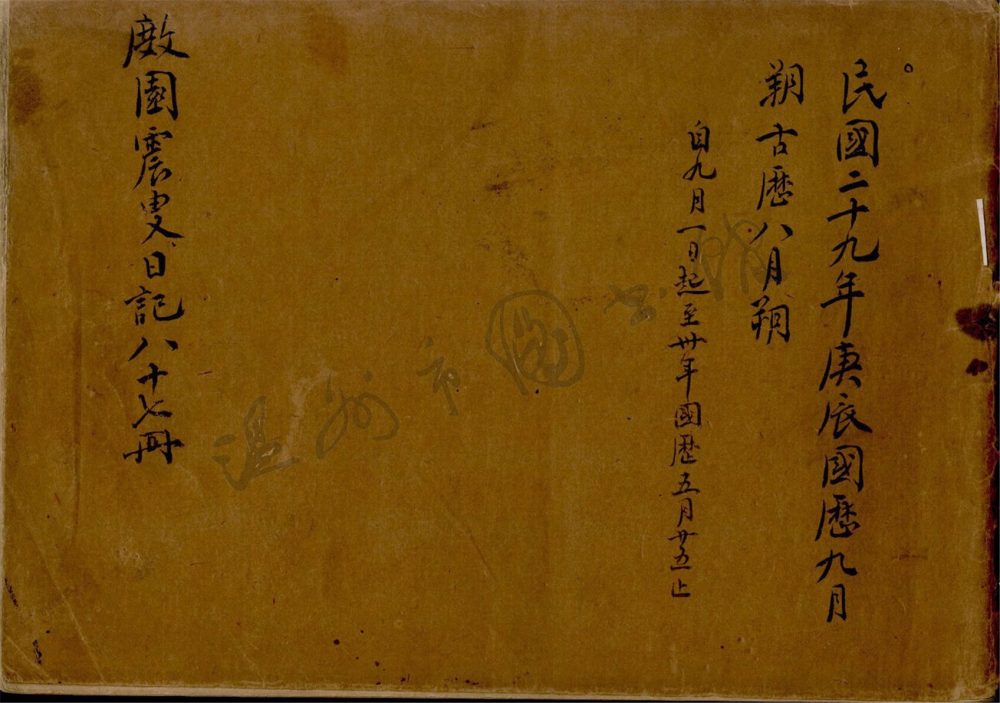 民國二十九年庚辰國歷九月
朔古歷八月朔
自九月一日起至卅年國歷五月廿五止
厰園震叟日記八十七冊
溫州市圖書館